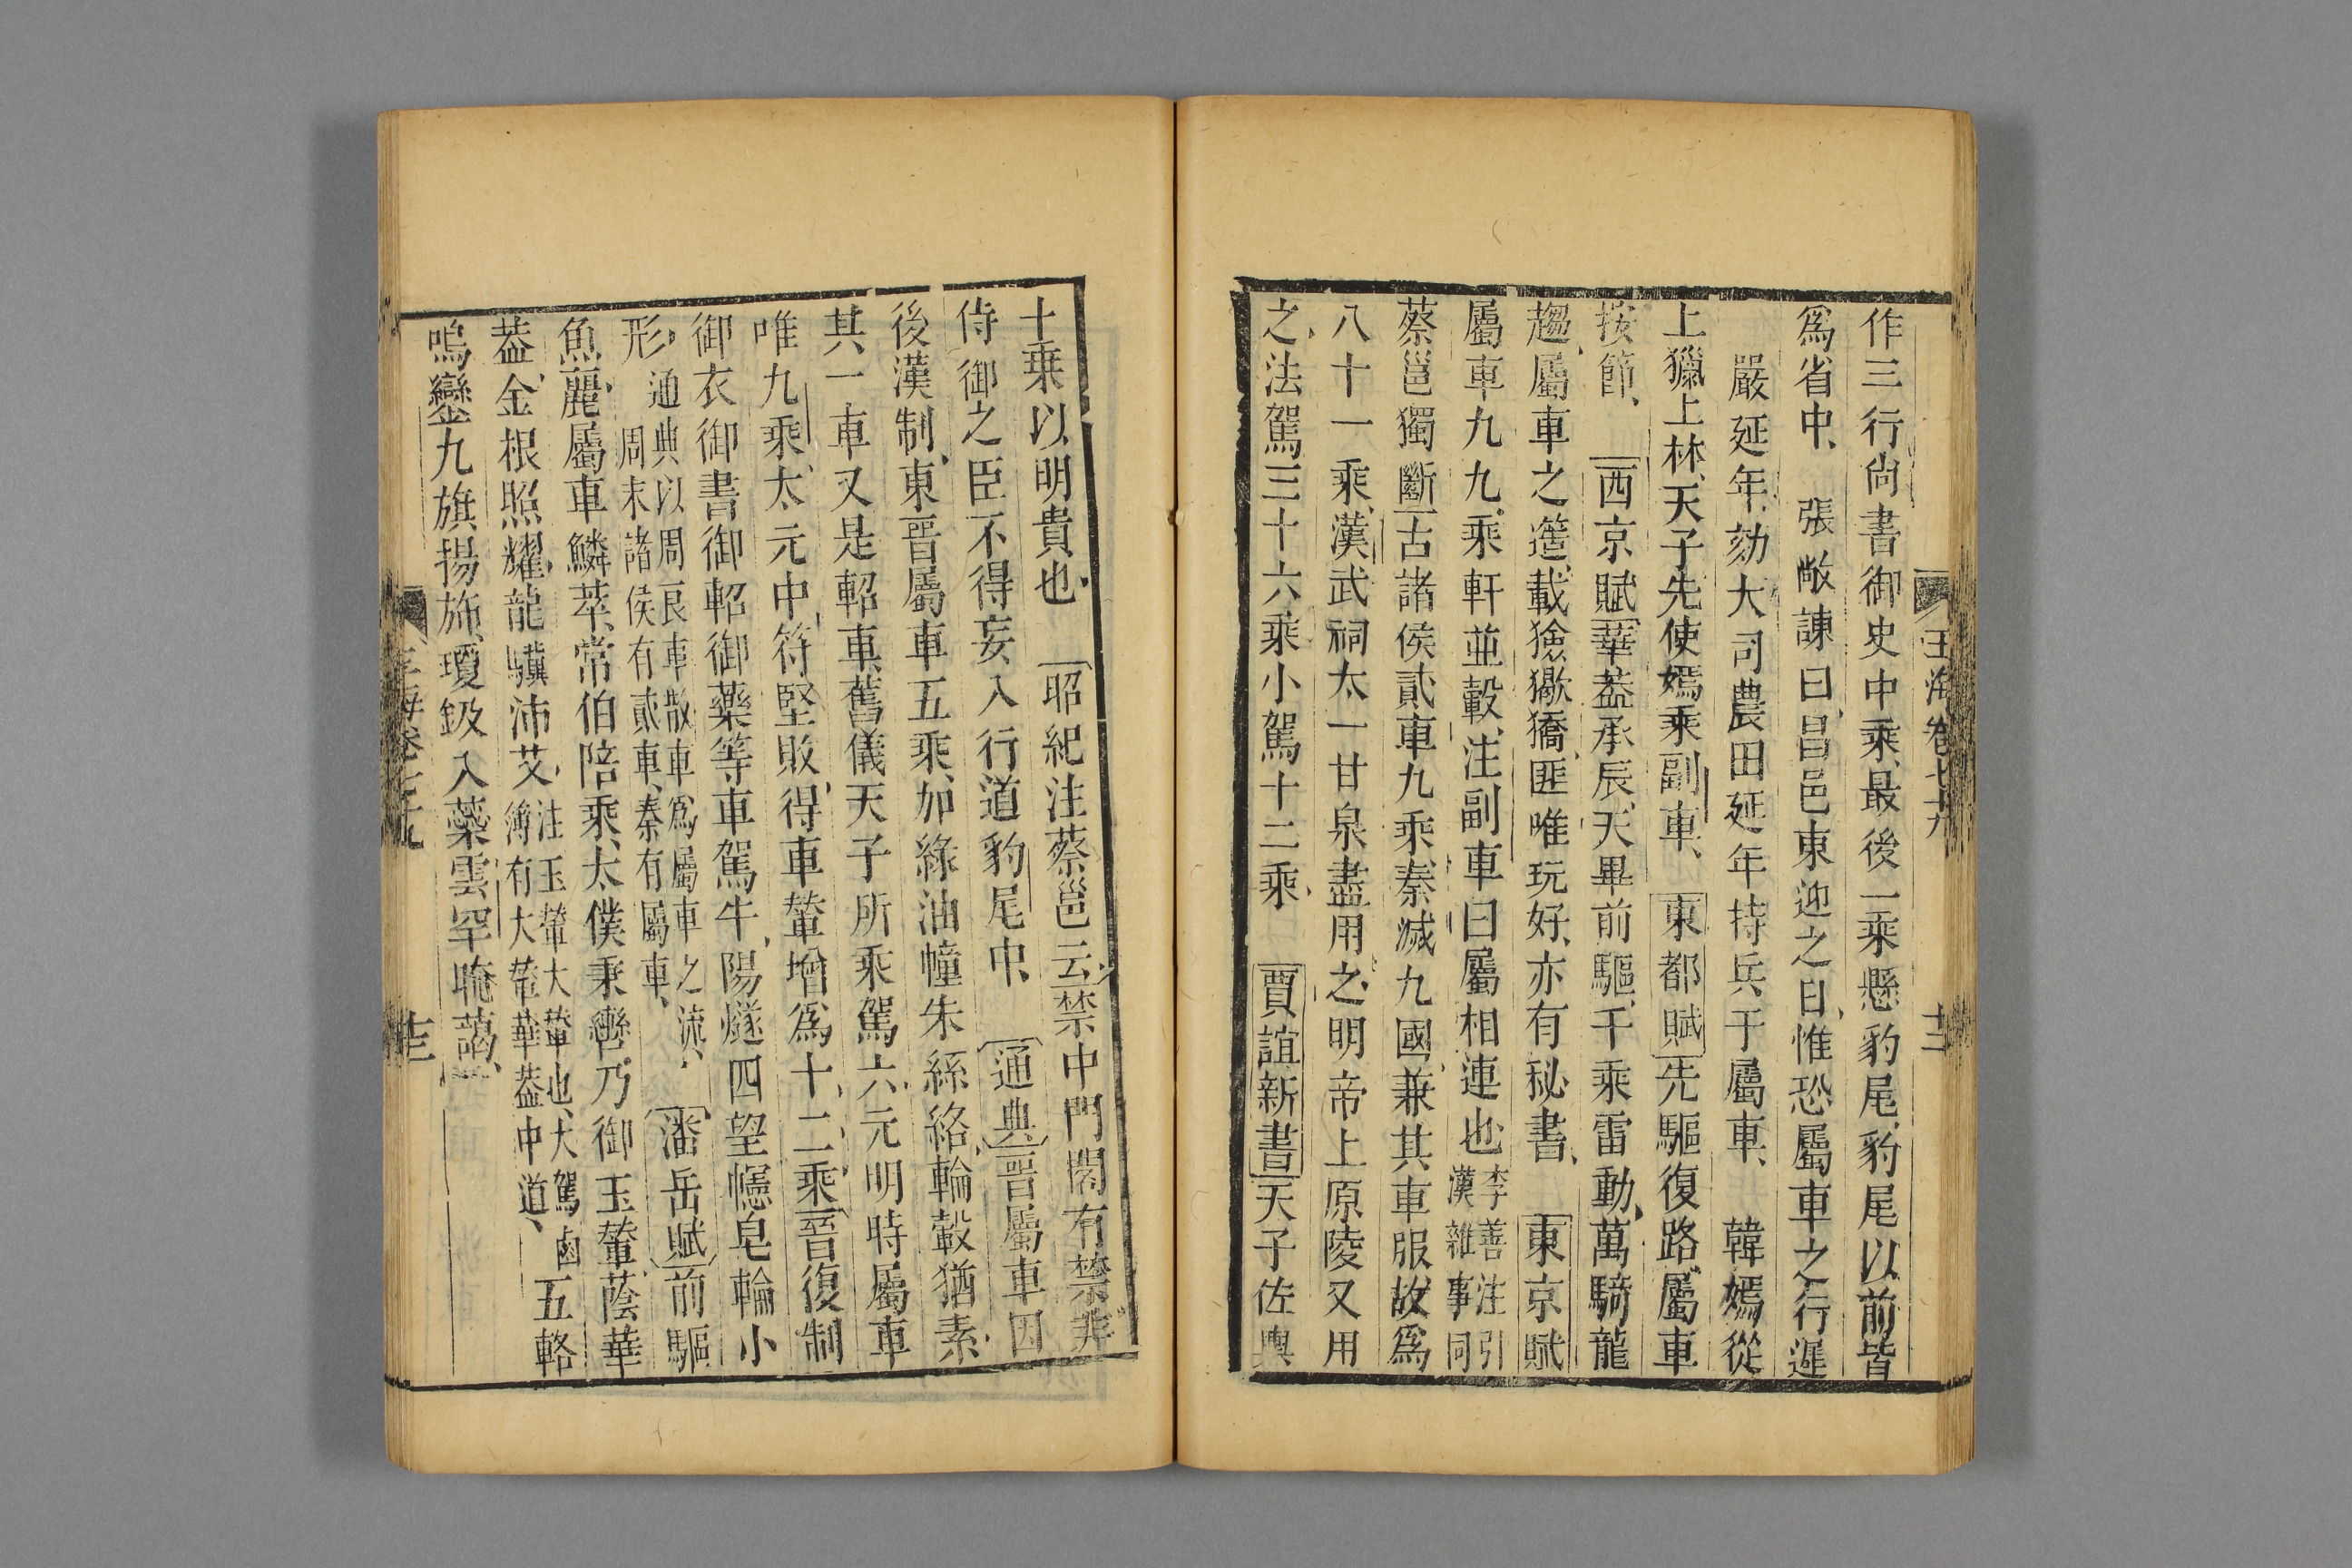 玉海卷七十九
十二
作三行尚書御史中乘最後一乘懸豹尾豹尾以前皆
爲省中 張敞諫曰昌邑東迎之日惟恐屬車之行遲
嚴延年劾大司農田延年持兵干屬車 韓嫣從
上獵上林天子先使嫣乘副車 東都賦先驅復路屬車
按節 西京賦華葢承辰天畢前驅千乘雷動萬騎龍
趨屬車之簉載獫猲獢匪唯玩好亦有秘書 東京賦
屬車九九乘軒並轂注副車曰屬相連也李善注引漢雜事同
蔡邕獨斷古諸侯貳車九乘秦滅九國兼其車服故爲
八十一乘漢武祠太一甘泉盡用之明帝上原陵又用
之法駕三十六乘小駕十二乘 賈誼新書天子佐輿
十乗以明貴也 昭紀注蔡邕云禁中門閤有禁非
侍御之臣不得妄入行道豹尾中 通典晉屬車因
後漢制東晉屬車五乘加綠油幢朱絲絡輪轂猶素
其一車又是軺車舊儀天子所乘駕六元明時屬車
唯九乘太元中苻堅敗得車輦增爲十二乘晉復制
御衣御書御軺御藥等車駕牛陽燧四望幰皂輪小
形通典以周㫐車散車爲屬車之流周末諸侯有貳車秦有屬車 潘岳賦前驅
魚麗屬車鱗萃常伯陪乘太僕秉轡乃御玉輦蔭華
葢金根照耀龍驥沛艾注玉輦大輦也大駕鹵簿有大輦華葢中道 五輅
鳴鑾九旗揚斾瓊鈒入蘂雲罕晻藹
玉海卷七十九
十三